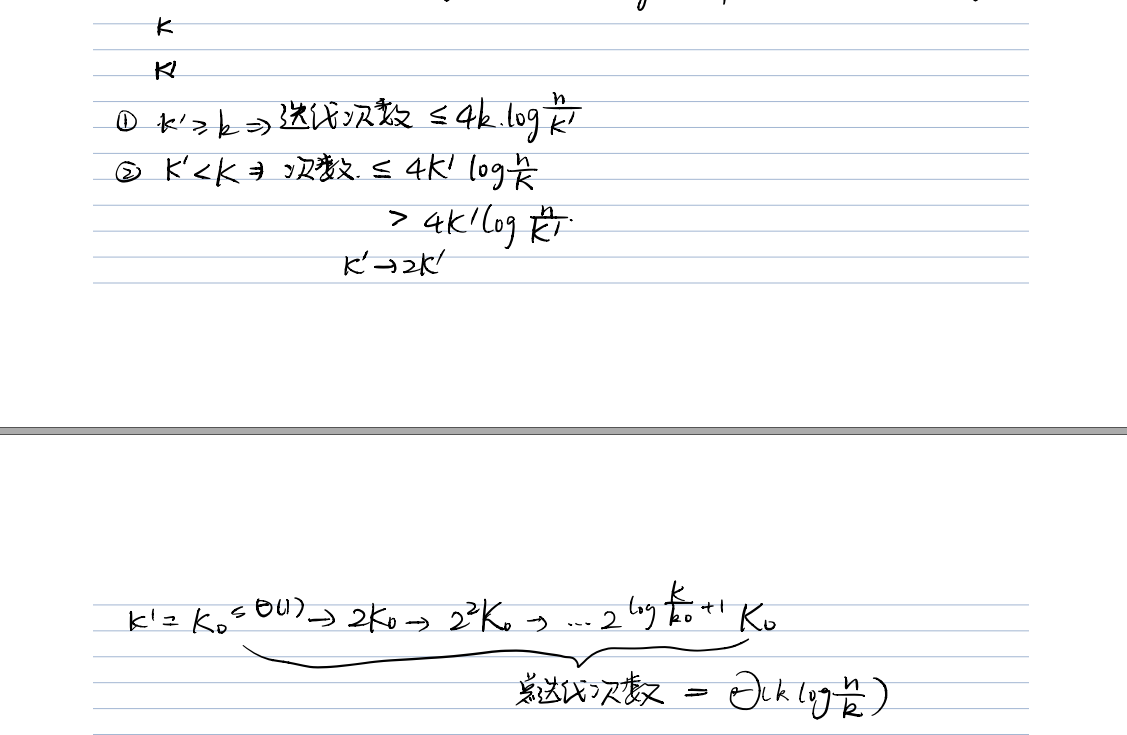 K
K'
① k' ≥ k ⇒ 迭代次数 ≤ 4k·log n/k'
② K' < K ⇒ 次数 ≤ 4K' log n/K
> 4K' log n/K'
K' → 2K'
K' = K₀ ≤ Θ(1) → 2K₀ → 2²K₀ → ... 2^(log k/k₀ + 1) K₀
总迭代次数 = Θ(k log n/k)